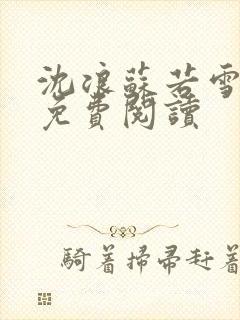 沈浪蘇若雪
免費閱讀
騎著掃帚赶着